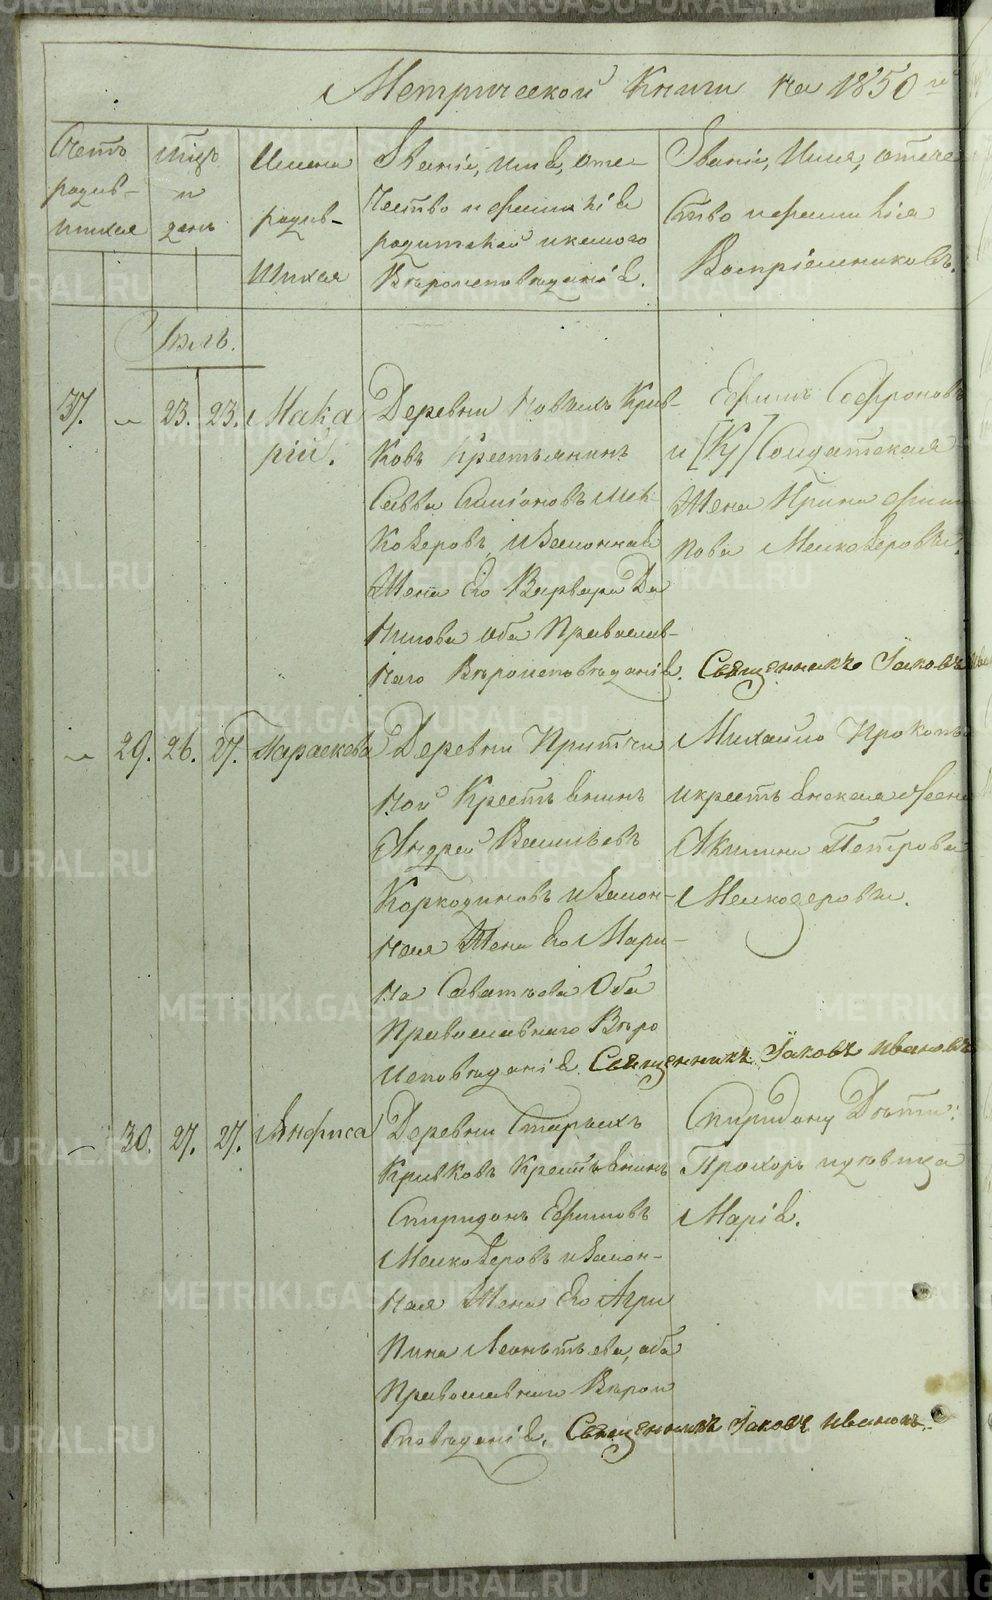 Метрической Книги на 1850 го
Счетъ
родив-
шихся
Мцъ
и
день
Имена
родив-
шихся
Званіе, имя, оте-
чество и фамилія
родителей и какого
Вѣроисповѣданія.
Званіе, Имя, отече
ство и фамилія
Воспріемниковъ.
Іюль.
37. 23. 23. Мака
рій.
Деревни Новыхъ Крив-
ковъ Крестьянинъ
Савва Симіоновъ Мел-
козеровъ, и Законная
Жена Его Варвара Да
нилова оба Православ-
наго Вѣроисповѣданія.
Ефимъ Софроновъ
и [Кр] Солдатская
Жена Ирина Фили
пова Мелкозеровы.
Священникъ Іаковъ
29. 26. 27. Параскева
Деревни Притчи
ной Крестьянинъ
Андрей Васильевъ
Коркодиновъ и Закон-
ная Жена Его Мари-
на Саватѣева Оба
Православнаго Вѣро
исповѣданія. Священникъ Іаковъ Ивановъ
Михайло Прокопь
и крестьянская
Акилина Петрова
Мелкозеровы.
30. 27. 27. Анфиса
Деревни Старыхъ
Кривковъ Крестьянинъ
Спиридонъ Ефимовъ
Мелкозеровъ и Закон-
ная Жена Его Агри
пина Леонтьева, оба
Православнаго Вѣрои
сповѣданія. Священникъ Іаковъ Ивановъ
Спиридону Дѣти:
Прохоръ и дѣвица
Марія.
METRIKI.GASO-URAL.RU